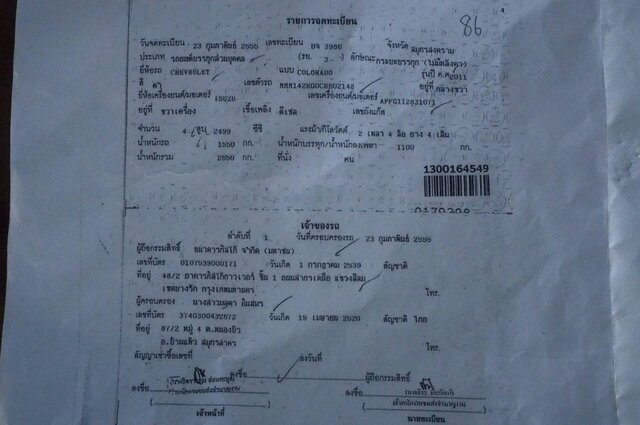 86
4
รายการจดทะเบียน
วันจดทะเบียน 23 กุมภาพันธ์ 2555 เลขทะเบียน ยจ 3986 จังหวัด สมุทรสงคราม
ประเภท รถยนต์บรรทุกส่วนบุคคล (รย. 3 ) ลักษณะ กระบะบรรทุก (ไม่มีหลังคา)
ยี่ห้อรถ CHEVROLET แบบ COLORADO รุ่นปี ค.ศ. 2011
สี ดำ เลขตัวรถ อยู่ที่ กลางขวา
ยี่ห้อเครื่องยนต์/มอเตอร์ ISUZU เลขเครื่องยนต์/มอเตอร์ APFG112831071
อยู่ที่ ขวาเครื่อง เชื้อเพลิง ดีเซล เลขถังแก๊ส
จำนวน 4 สูบ 2499 ซีซี แรงม้า/กิโลวัตต์ 2 เพลา 4 ล้อ ยาง 4 เส้น
น้ำหนักรถ 1550 กก. น้ำหนักบรรทุก/น้ำหนักลงเพลา 1100 กก.
น้ำหนักรวม 2650 กก. ที่นั่ง คน
1300164549
เจ้าของรถ
ลำดับที่ 1 วันที่ครอบครองรถ 23 กุมภาพันธ์ 2555
ผู้ถือกรรมสิทธิ์ ธนาคารทิสโก้ จำกัด (มหาชน)
เลขที่บัตร 0107539000171 วันเกิด 1 กรกฎาคม 2539 สัญชาติ
ที่อยู่ 48/2 อาคารทิสโก้ทาวเวอร์ ชั้น 1 ถนนสาทรเหนือ แขวงสีลม
เขตบางรัก กรุงเทพมหานคร โทร.
ผู้ครอบครอง นางสาว
เลขที่บัตร 3740300432672 วันเกิด 19 เมษายน 2520 สัญชาติ ไทย
ที่อยู่ 87/2 หมู่ 4 ต.หนองบัว
อ.บ้านแพ้ว สมุทรสาคร โทร.
สัญญาเช่าซื้อเลขที่ ลงวันที่
ลงชื่อ ผู้ถือกรรมสิทธิ์
ลงชื่อ ลงชื่อ
เจ้าหน้าที่ นายทะเบียน